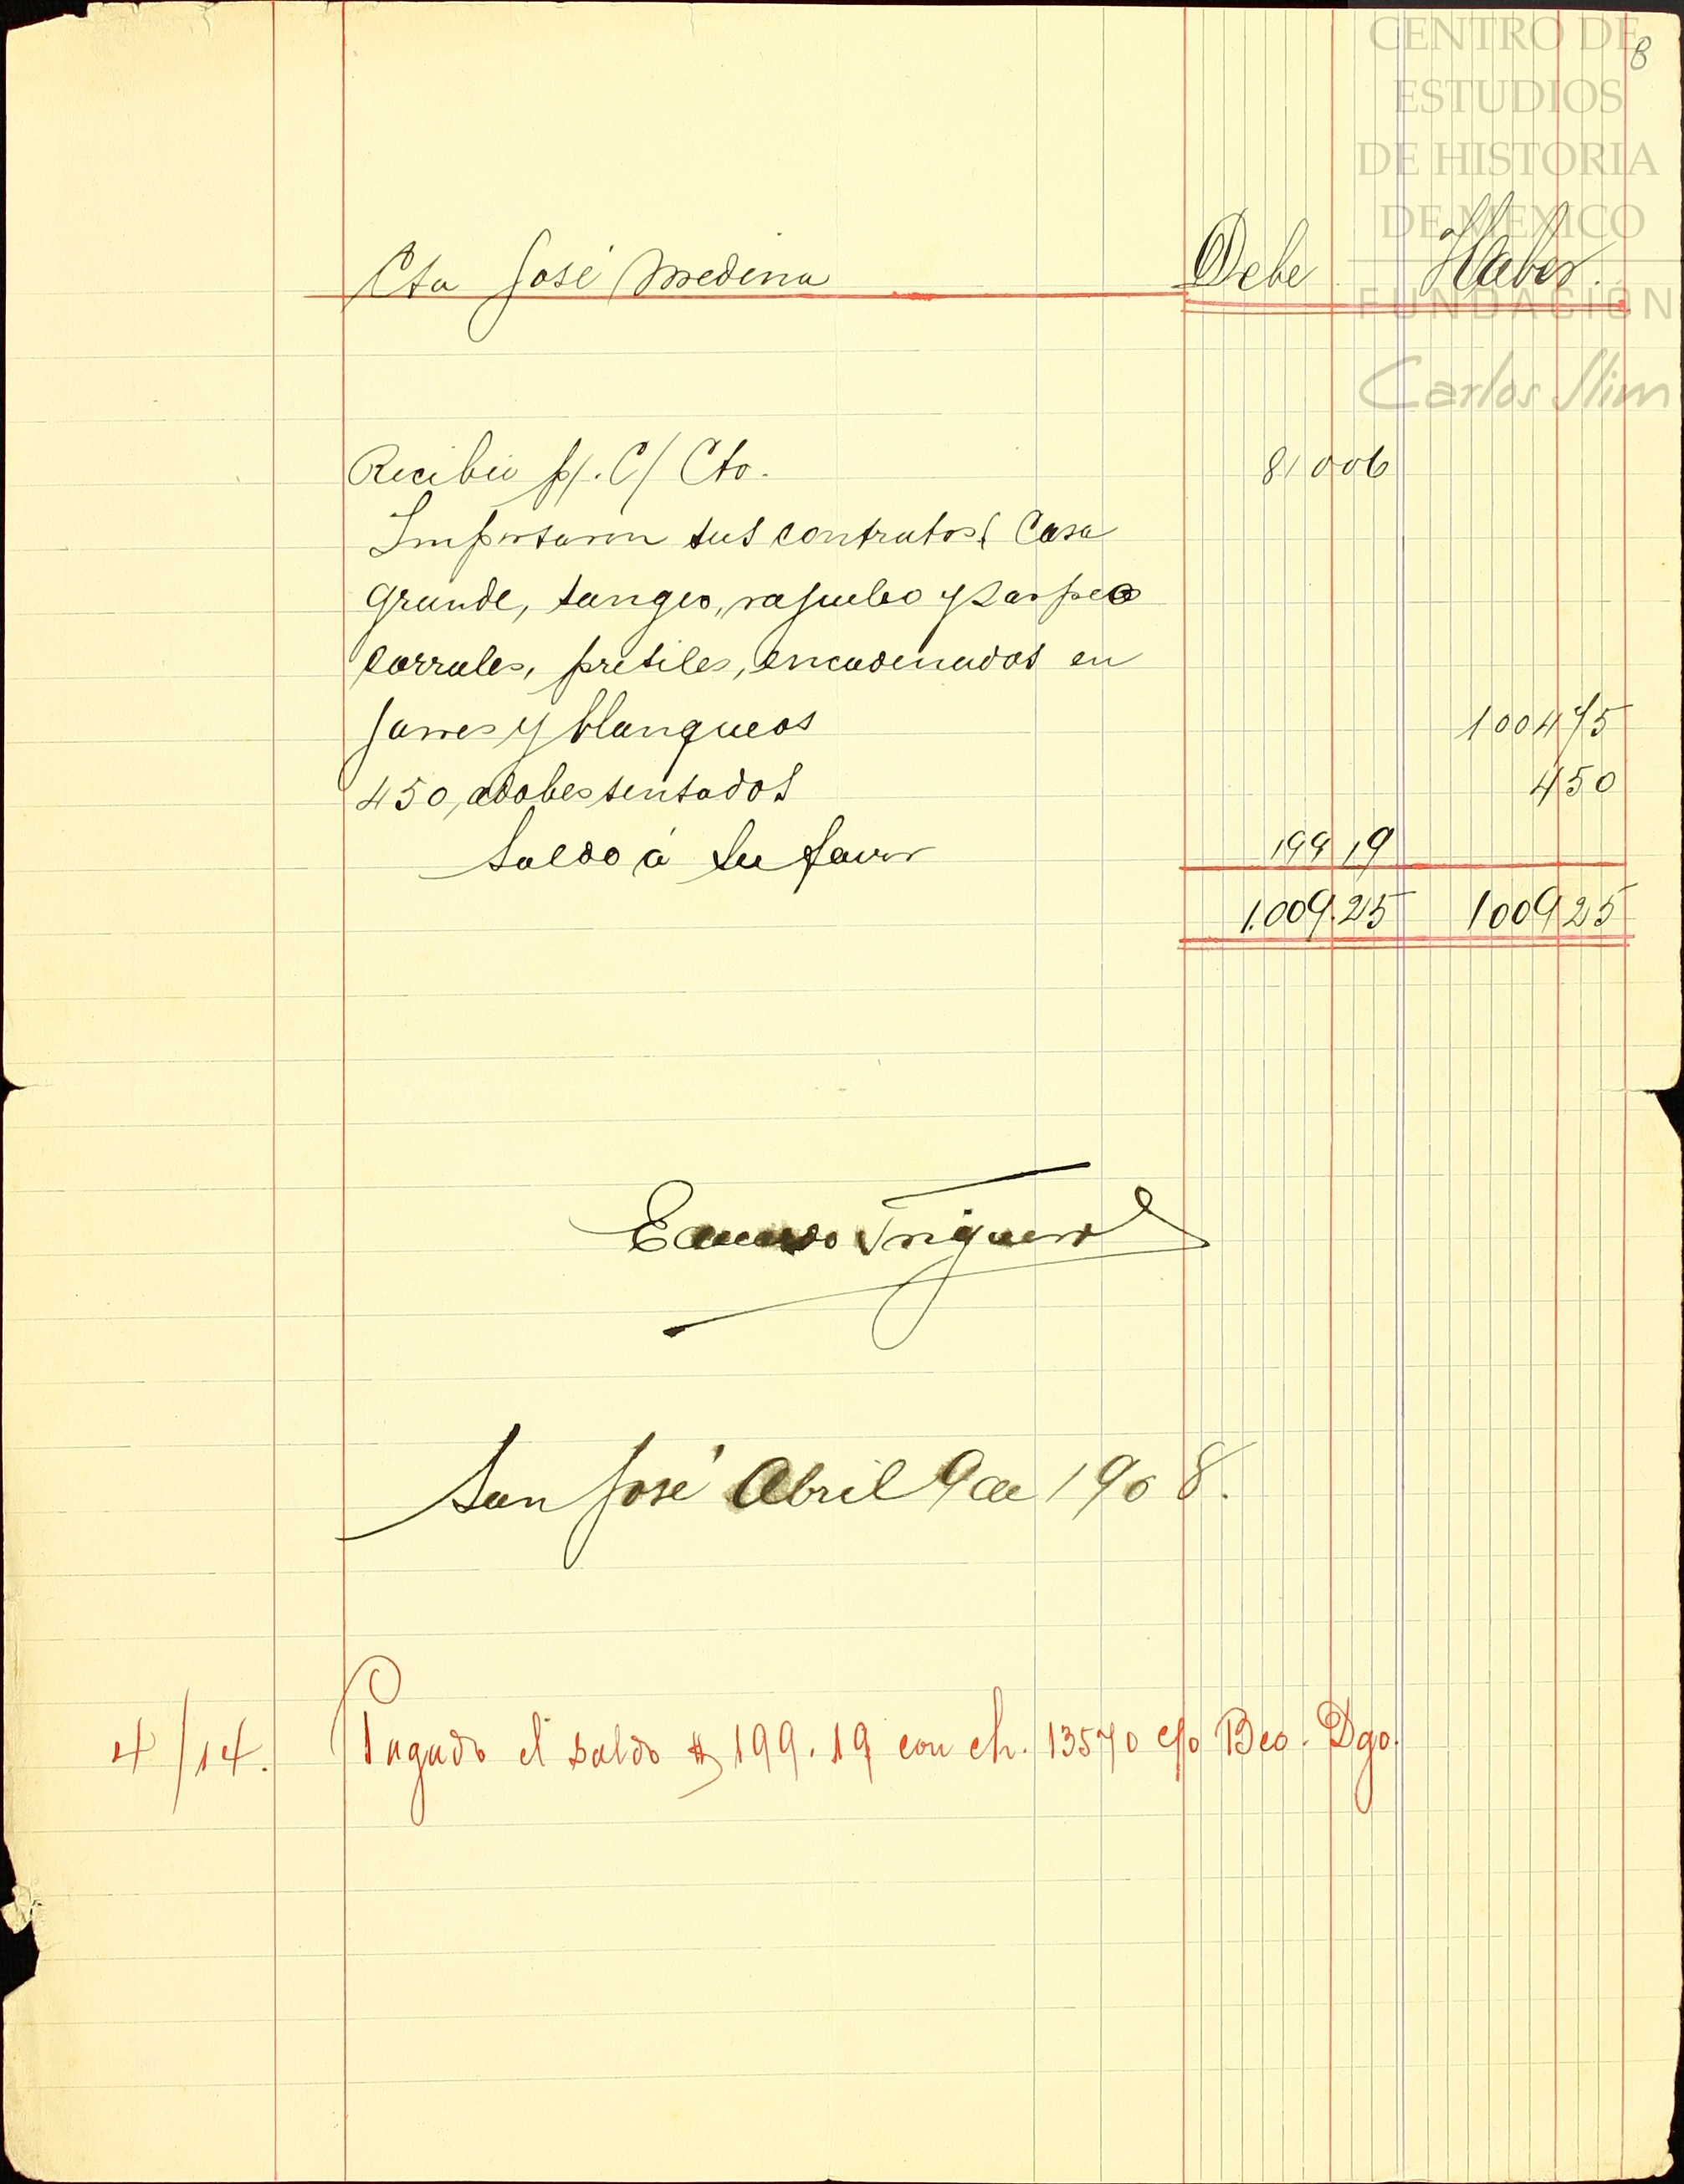 CENTRO DE
ESTUDIOS
DE HISTORIA
DE MEXICO
FUNDACIÓN
Carlos Slim
8
Cta José Medina Debe Haber.
Recibió p/. C/ Cto. 810 06
Importaron sus contratos ( Casa
Grande, tangeo, rajueleo y zarpeo
corrales, pretiles, encadenados en
Jarres y blanqueos 1004 75
450, adobes sentados 4 50
Saldo á su favor 199 19
1.009.25 1009 25
Eduardo Triguero
San José Abril 9 de 1908.
4/14. Pagado el saldo $ 199.19 con ch. 13570 c/o Bco. Dgo.